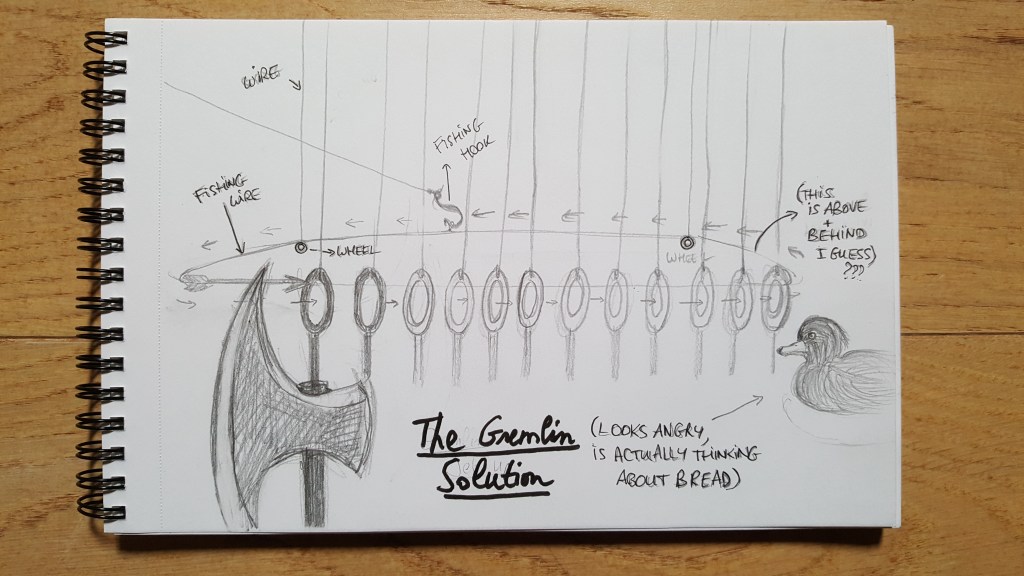 WIRE
FISHING
HOOK
FISHING
WIRE
(THIS
IS ABOVE
+
BEHIND
I GUESS)
???
WHEEL
WHEEL
The Gremlin
Solution
(LOOKS ANGRY,
IS ACTUALLY THINKING
ABOUT BREAD)